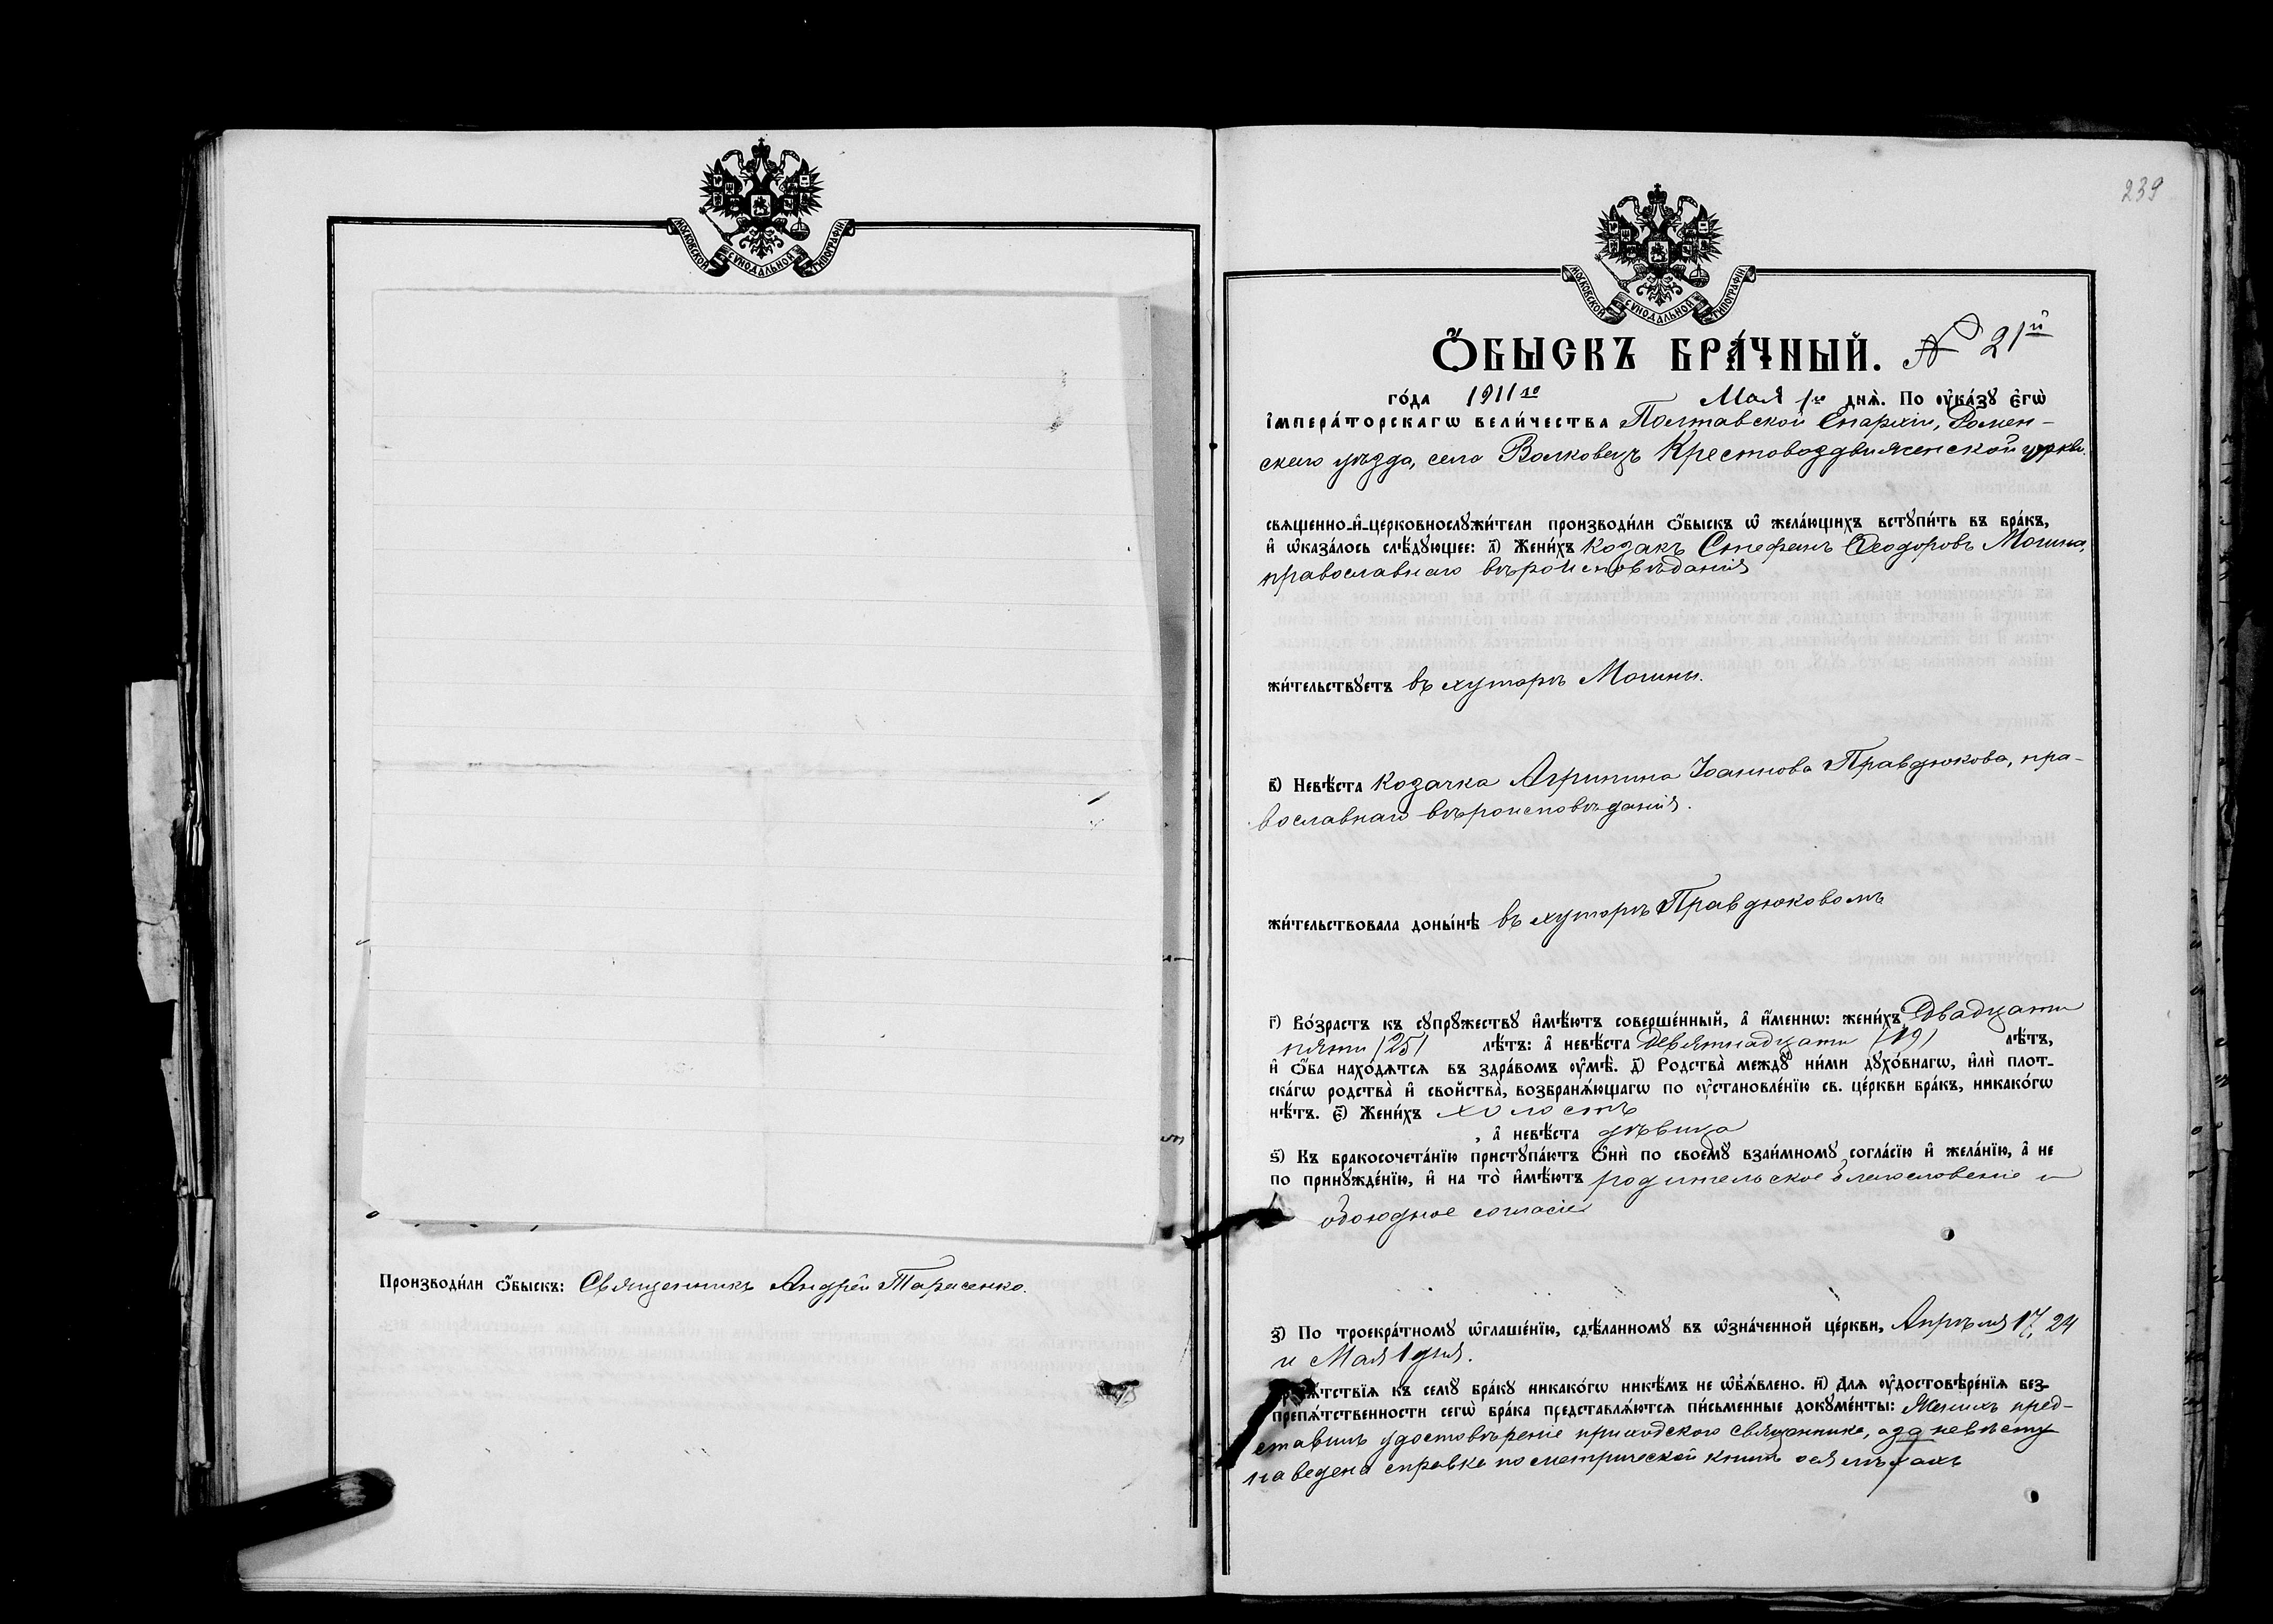 МОСКОВСКОЙ СѴНОДАЛЬНОЙ ТИПОГРАФІИ
Производи́ли ѻ҆́быскъ: Священникъ Андрей Тарасенко.
239
МОСКОВСКОЙ СѴНОДАЛЬНОЙ ТИПОГРАФІИ
Ѻ҆́БЫСКЪ БРА́ЧНЫЙ. № 21й
го́да 1911го Мая 1го днѧ̀. По ᲂу҆ка́зꙋ є҆гѡ̀
і҆мпера́торскагѡ вели́чества Полтавской Епархіи, Ромен-
скаго уѣзда, села Волковецъ Крестовоздвиженской церкви.
свѧщенно-и҆-церковнослꙋжи́тели производи́ли ѻ҆́быскъ ѡ҆ жела́ющихъ встꙋпи́ть въ бра́къ,
и҆ ѡ҆каза́лось слѣ́дꙋющее: а҃) Жени́хъ козакъ Стефанъ Ѳеодоровъ Могина,
православнаго вѣроисповѣданія
жи́тельствꙋетъ въ хуторѣ Могины.
в҃) Невѣ́ста козачка Агрипина Іоаннова Правдюкова, пра-
вославнаго вѣроисповѣданія.
жи́тельствовала доны́нѣ въ хуторѣ Правдюковомъ
г҃) Во́зрастъ къ сꙋпрꙋ́жествꙋ и҆мѣ́ютъ соверше́нный, а҆ и҆́меннѡ: жени́хъ Двадцати
пяти /25/ лѣ́тъ: а҆ невѣ́ста девятнадцати /19/ лѣ́тъ,
и҆ ѻ҆́ба нахо́дѧтсѧ въ здра́вомъ ᲂу҆мѣ̀. д҃) Родства̀ междꙋ̀ ни́ми дꙋхо́внагѡ, и҆лѝ плот-
ска́гѡ родства̀ и҆ сво́йства̀, возбранѧ́ющагѡ по ᲂу҆становле́нїю св. це́ркви бра́къ, никако́гѡ
нѣ́тъ. є҃) Жени́хъ холостъ
, а҆ невѣ́ста дѣвица
ѕ҃) Къ бракосочета́нїю пристꙋпа́ютъ ѻ҆нѝ по своемꙋ̀ взаи́мномꙋ согла́сїю и҆ жела́нїю, а҆ не
по принꙋжде́нїю, и҆ на то̀ и҆мѣ́ютъ родительское благословеніе и
обоюдное согласіе
з҃) По троекра́тномꙋ ѡ҆глаше́нїю, сдѣ́ланномꙋ въ ѡ҆зна́ченной це́ркви, Апрѣля 17, 24
и Мая 1 дня.
препѧ́тствїѧ къ семꙋ̀ бра́кꙋ никако́гѡ никѣ́мъ не ѡ҆б̾ѧ́влено. и҃) Длѧ ᲂу҆достовѣре́нїѧ без-
препѧ́тственности сегѡ̀ бра́ка представлѧ́ютсѧ пи́сьменные докꙋме́нты: Женихъ пред-
ставилъ удостовѣреніе приходского священника, а за невѣсту
наведена справка по метрической книгѣ о я лѣтахъ